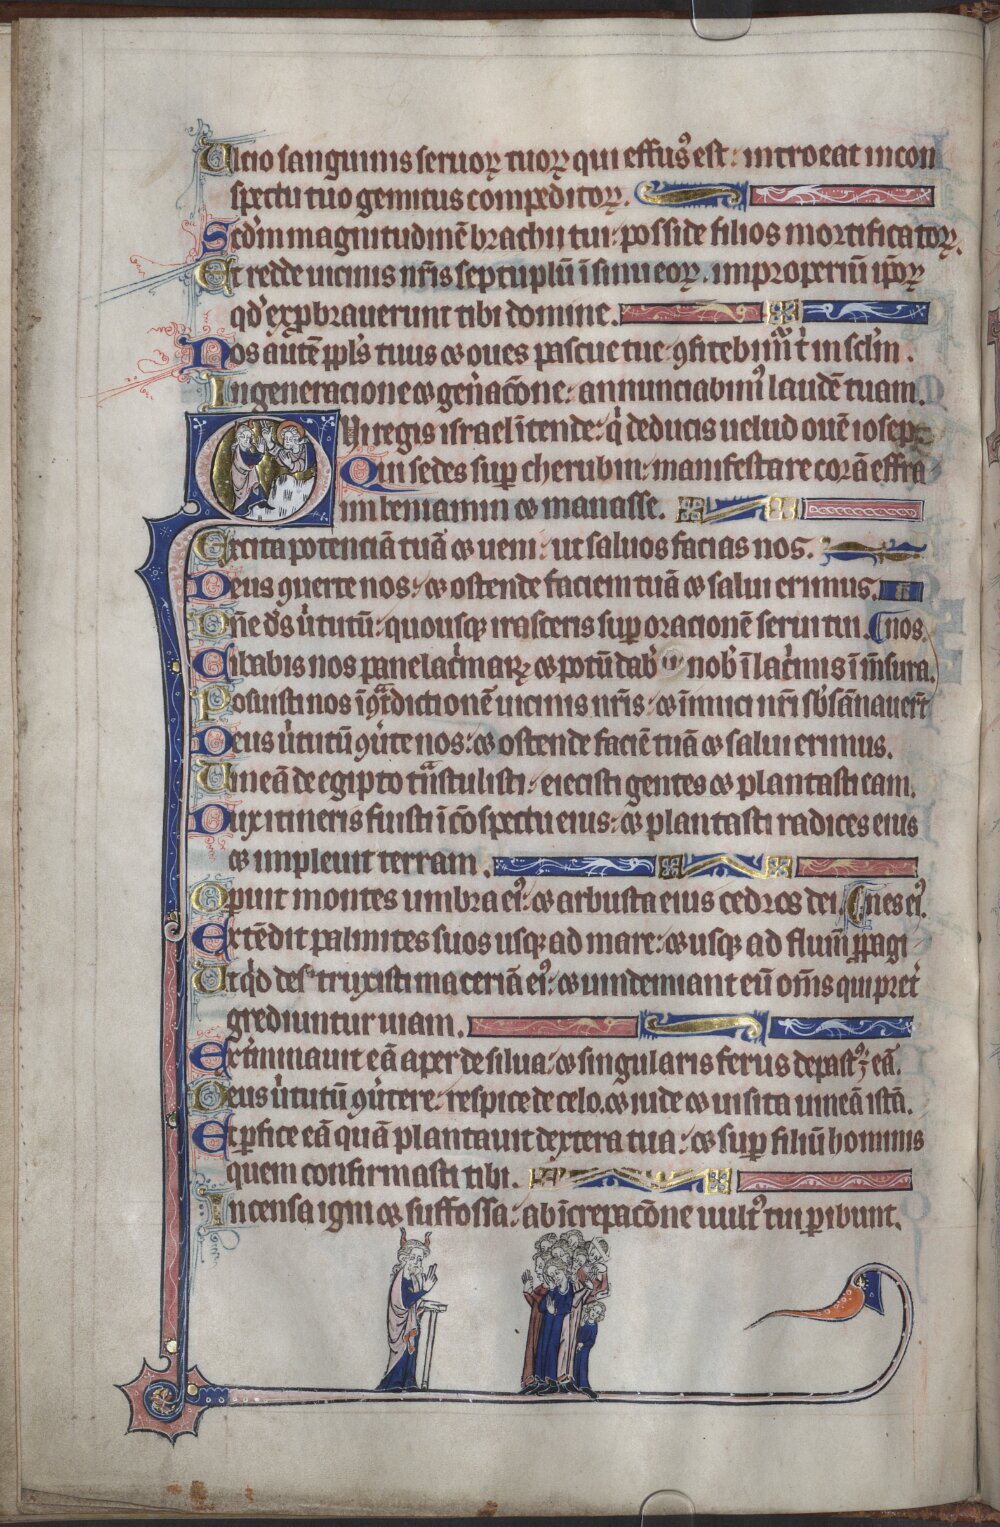 Ultio sanguinis seruoꝝ tuoꝝ qui effusꝰ est: introeat in con
spectu tuo gemitus compeditoꝝ.
Scd̄m magnitudinē brachii tui: posside filios mortificatoꝝ.
Et redde uicinis nr̄is septuplū ī sinu eoꝝ. improperiū ip̄oꝝ
qd̓ exp̱brauerunt tibi domine.
Nos autē ppl̓s tuus ⁊ oues pascue tue: ꝯfitebim̄ t̓ in sclm̄.
In generacione ⁊ gen̓acōne: annunciabimꝰ laudē tuam.
Qui regis israel ītende: q̓ deducis uelud ouē iosep
Qui sedes suꝑ cherubin: manifestare corā effra
im beniamin ⁊ manasse.
Excita potenciā tuā ⁊ ueni: ut saluos facias nos.
Deus ꝯuerte nos: ⁊ ostende faciem tuā ⁊ salui erimus.
Dn̄e d̓s u̓tutū: quousqꝫ irasceris suꝑ oracionē serui tui.
nos.
Cibabis nos pane lac̓maꝝ ⁊ potū dab̓ nob̓ ī lac̓mis ī m̄sura.
Posuisti nos ī ꝯt̾dictionē uicinis nr̄is: ⁊ inimici nr̄i sb̓sānauer̄t
Deus u̓tutū ꝯu̓te nos: ⁊ ostende faciē tuā ⁊ salui erimus.
Uineā de egipto tn̾stulisti: eiecisti gentes ⁊ plantasti eam.
Dux itineris fuisti ī cōspectu eius: ⁊ plantasti radices eius
⁊ impleuit terram.
Operuit montes umbra eiꝰ: ⁊ arbusta eius cedros dei.
nes eiꝰ.
Extēdit palmites suos usqꝫ ad mare: ⁊ usqꝫ ad flum̄ ꝓpagi
Ut q̓d destruxisti maceriā eiꝰ: ⁊ uindemiant eū om̄s qui pret̓
grediuntur uiam.
Ext̓minauit eā aper de silua: ⁊ singularis ferus depastꝰ ē eā.
Deus u̓tutū ꝯu̓tere: respice de celo. ⁊ uide ⁊ uisita uineā istā.
Et ꝑfice eā quā plantauit dextera tua: ⁊ suꝑ filiū hominis
quem confirmasti tibi.
Incensa igni ⁊ suffossa: ab īcrepacōne uultꝰ tui ꝑibunt.